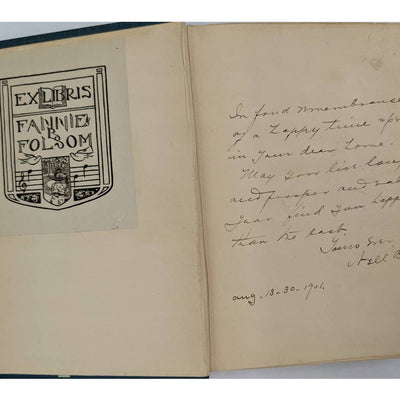 EX LIBRIS
FANNIE
B
FOLSOM
In fond remembrance
of a happy time
in your dear home.
May you live long
and prosper and
year find you
than the last.
Yours Ever,
Nell B
Aug-18-30-1901.